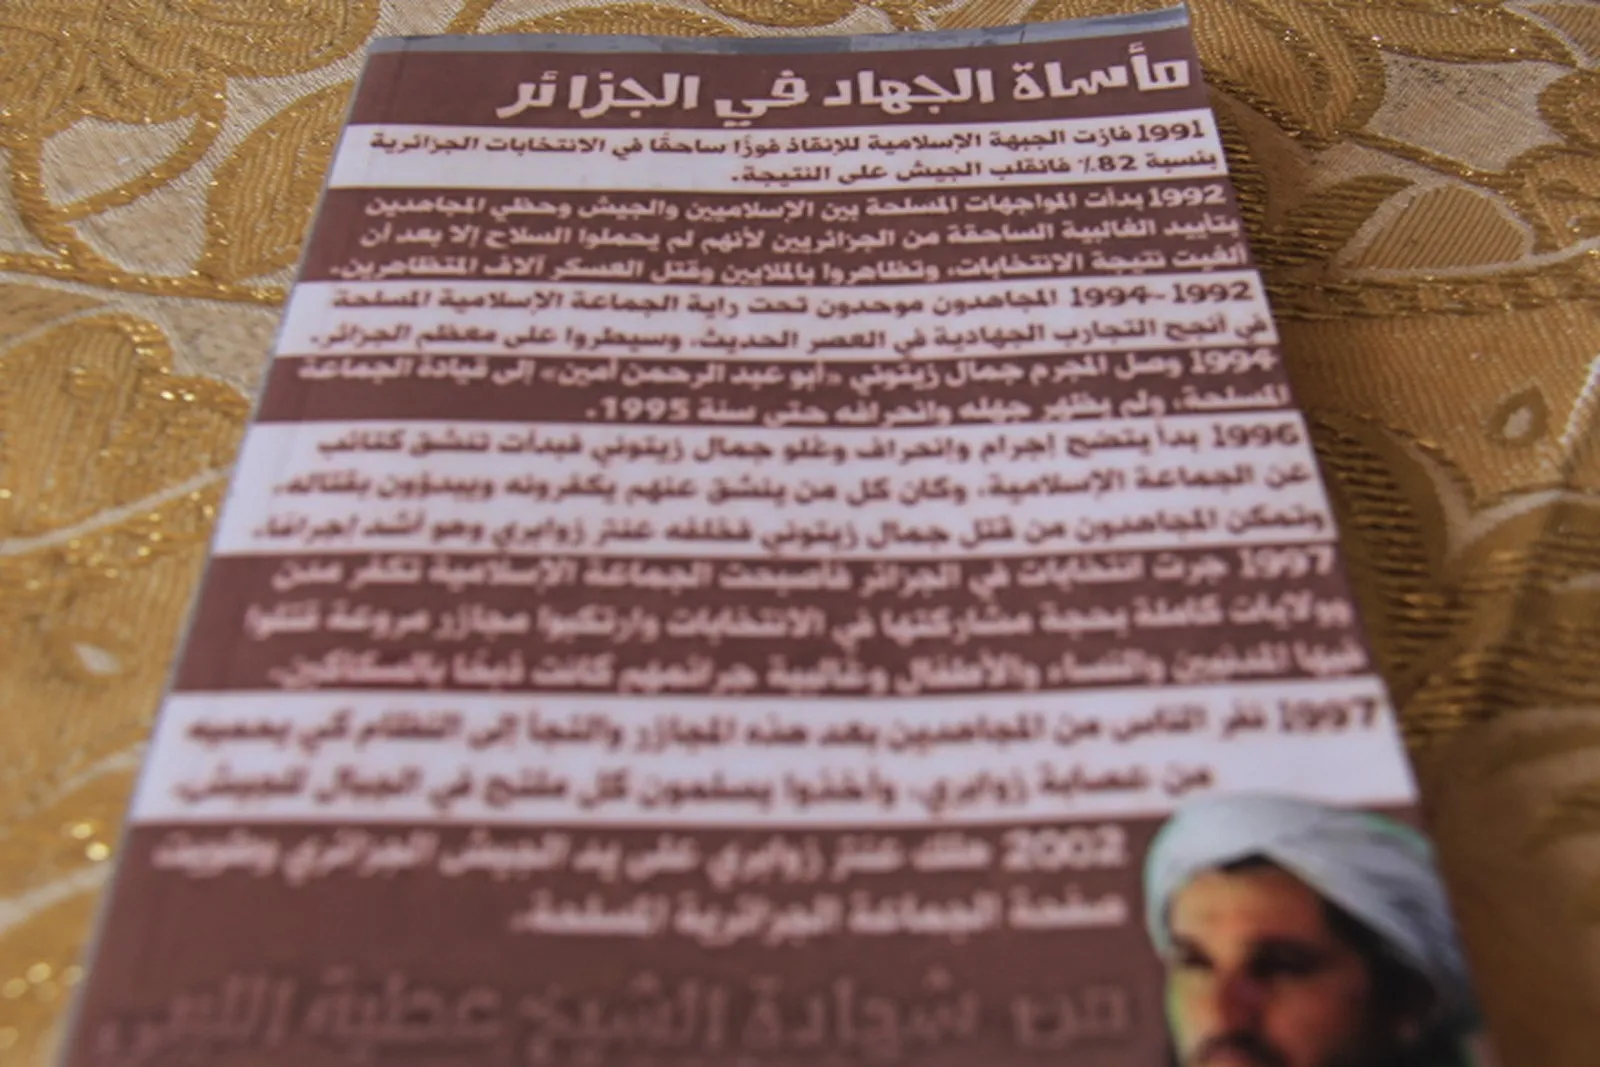 مأساة الجهاد في الجزائر
1991 فازت الجبهة الإسلامية للإنقاذ فوزًا ساحقًا في الانتخابات الجزائرية
بنسبة 82٪ فانقلب الجيش على النتيجة.
1992 بدأت المواجهات المسلحة بين الإسلاميين والجيش وحظي المجاهدين
بتأييد الغالبية الساحقة من الجزائريين لأنهم لم يحملوا السلاح إلا بعد أن
ألغيت نتيجة الانتخابات، وتظاهروا بالملايين وقتل العسكر آلاف المتظاهرين.
1992-1994 المجاهدون موحدون تحت راية الجماعة الإسلامية المسلحة
في أنجح التجارب الجهادية في العصر الحديث، وسيطروا على معظم الجزائر.
1994 وصل المجرم جمال زيتوني «أبو عبد الرحمن أمين» إلى قيادة الجماعة
المسلحة، ولم يظهر جهله وانحرافه حتى سنة 1995.
1996 بدأ يتضح إجرام وانحراف وغلو جمال زيتوني فبدأت تنشق كتائب
عن الجماعة الإسلامية، وكان كل من ينشق عنهم يكفرونه ويبدؤون بقتاله،
وتمكن المجاهدون من قتل جمال زيتوني فخلفه عنتر زوابري وهو أشد إجرامًا.
1997 جرت انتخابات في الجزائر فأصبحت الجماعة الإسلامية تكفر مدن
وولايات كاملة بحجة مشاركتها في الانتخابات وارتكبوا مجازر مروعة قتلوا
فيها المدنيين والنساء والأطفال وغالبية جرائمهم كانت ذبحًا بالسكاكين.
1997 نفر الناس من المجاهدين بعد هذه المجازر والتجأ إلى النظام كي يحميه
من عصابة زوابري، وأخذوا يسلمون كل ملتح في الجبال للجيش.
2002 هلك عنتر زوابري على يد الجيش الجزائري وطويت
صفحة الجماعة الجزائرية المسلحة.
من شهادة الشيخ عطية الليبي